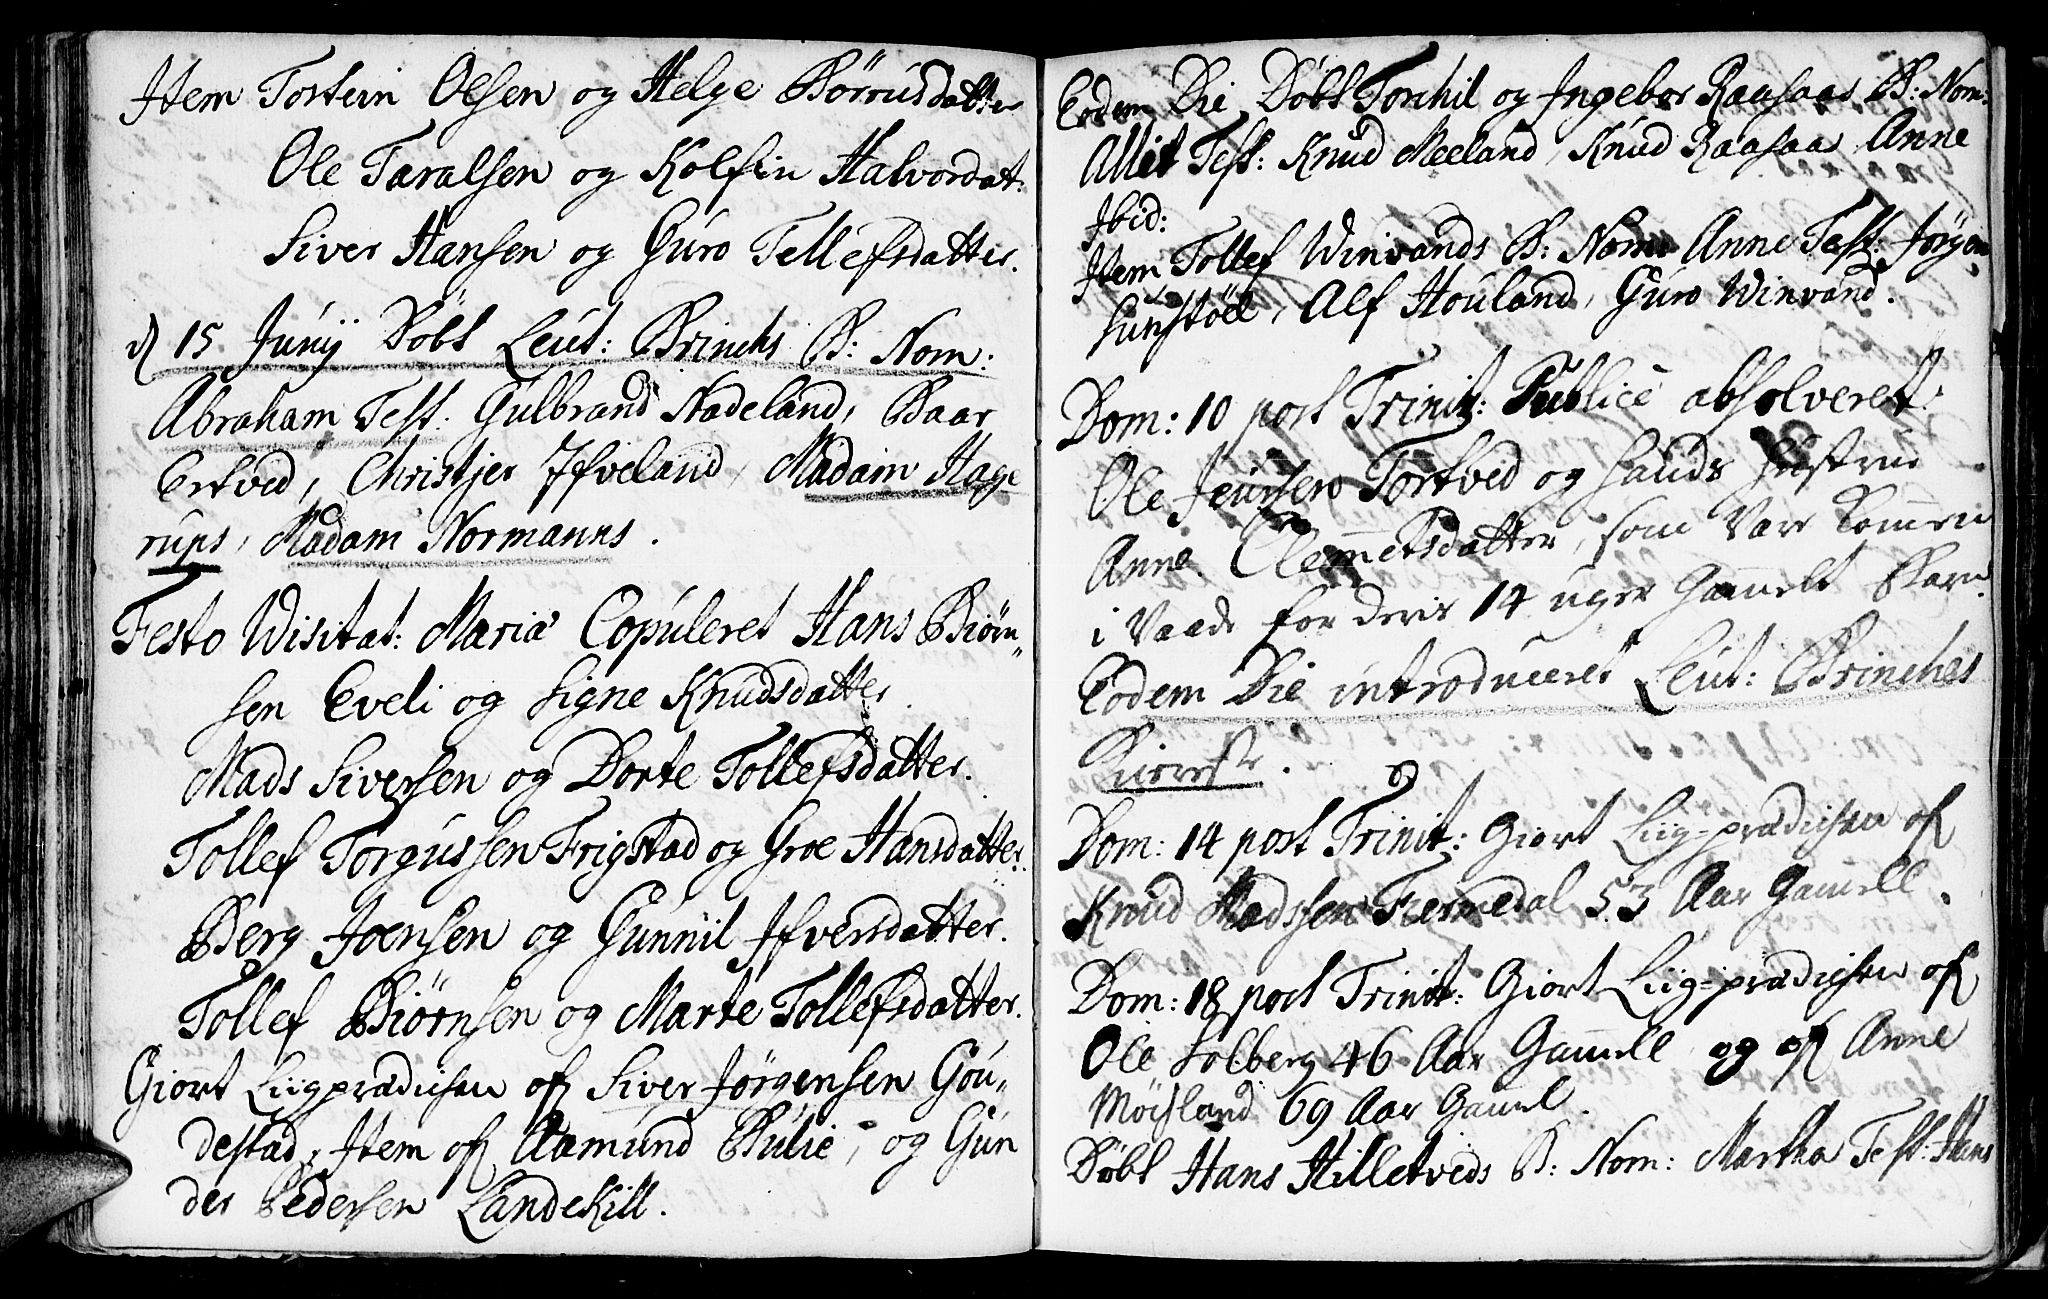 Item Tostein Olsen og Helge Börrudsdatter
Ole Taralsen og Kolfin Halvordat:
Siver Hansen og Guro Tellefsdatter.
d 15 Junij Döbt Leut: Brinchs B: Nom:
Abraham Test: Gulbrand Stadeland, Baar
Ertved, Christjer Ifveland, Madam Hage
rups, Madam Normanns.
Festo Wisitat: Mariæ Copuleret Hans Biörn
sen Eveli og Signe Knudsdatter
Mads Siversen og Dorte Tollefsdatter.
Tollef Torgussen Frigstad og Groe Hansdatter.
Berg Joensen og Gunnil Ifversdatter.
Tollef Biörnsen og Marte Tollefsdatter.
Giort Liigprædicken of Siver Jörgensen Gou„
destad, Item of Aamund Bulie, og Gun
der Pedersen Landekill.
Eodem Die Döbt Torchil og Ingebor Raasaas B: Nom:
Allet Test: Knud Meeland, Knud Raasaas Anne
Ibid:
Item Tollef Winvands B: Nom: Anne Test: Jörgen
Sunstöel, Alf Houland, Guro Winvand.
Dom: 10 post Trinit: Publicè absolveret
Ole Jenssen Tortved og hands Hustrue
Anne Clemmetsdatter, som Var kommen
i Vaade for deris 14 uger Gammelt Barn.
Eodem Die introduceret Leut: Brinches
Kiereste.
Dom: 14 post Trinit: Giort Liig=prædicken of
Knud Madssen Fiermedal 53 Aar Gammell.
Dom: 18 post Trinit: Giort Liig=prædicken of
Ole Solberg 46 Aar Gammell og of Anne
Möisland 69 Aar Gammel.
Döbt Hans Hilletveds B: Nom: Martha Test: Hans